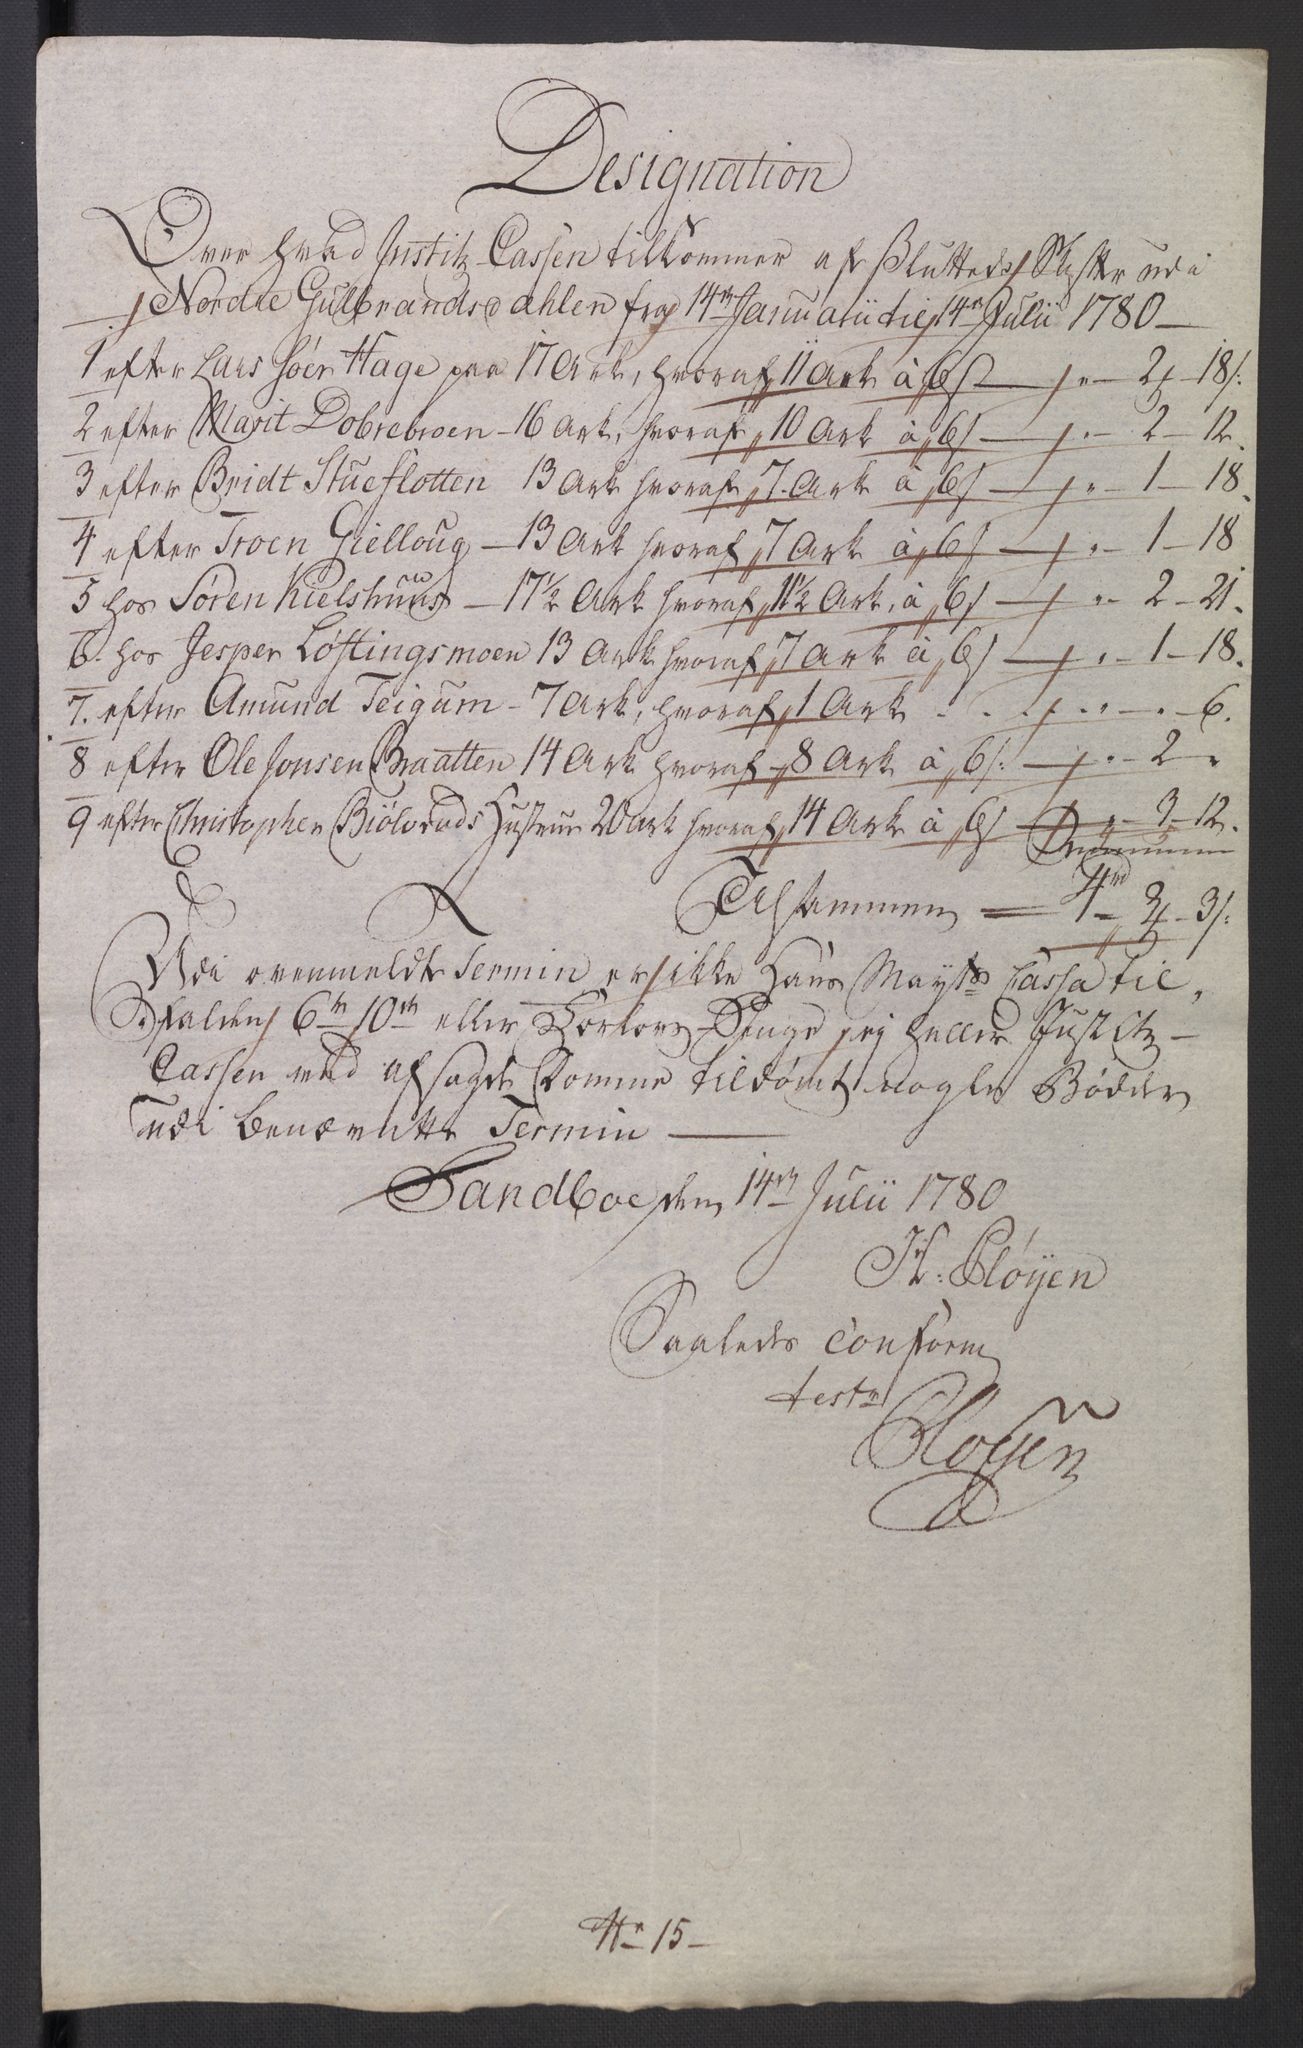 Designation
Over hvad Justitz-Cassen tilkommer af sluttede Skifter udi
Nordre Gulbrandsdahlen fra 14de Januarii til 14de Julii 1780 —
1 efter Lars Søer Hage paa 17 Ark, hvoraf 11 Ark à 6 s — " — 2 — 18 s:
2 efter Marit Dobrebroen — 16 Ark, hvoraf 10 Ark à 6 s — " — 2 — 12.
3 efter Bridt Stueflotten 13 Ark hvoraf 7. Ark à 6 s — " — 1 — 18.
4 efter Troen Gielloug — 13 Ark hvoraf 7 Ark à 6 s — " — 1 — 18
5 hos Søren Kielshuus — 17 1/2 Ark hvoraf 11 1/2 Ark, à 6 s — " — 2 — 21.
6. hos Jesper Løftingsmoen 13 Ark hvoraf 7 Ark à 6 s — " — 1 — 18.
7. efter Amund Teigum — 7 Ark, hvoraf 1 Ark . . . " — " — 6.
8 efter Ole Jonsen Braatten 14 Ark hvoraf 8 Ark à 6 s: — " — 2 "
9 efter Christopher Biølveruds Hustrue 20 Ark hvoraf 14 Ark à 6 s — " — 3 — 12.
Tilsammen — 4 rd — 3 — 3 s:
Udi ovenmeldte Termin er ikke Hans Maytts Cassa til-
falden 6te 10de eller Penge, ey heller Justitz-
Cassen ved afsagde Domme tildømt nogle Bøder
udi benævnte Termin —
Sandboe den 14de Julii 1780
H: Pløyen
Saaledes conform
test
Pløyen
No 15 —